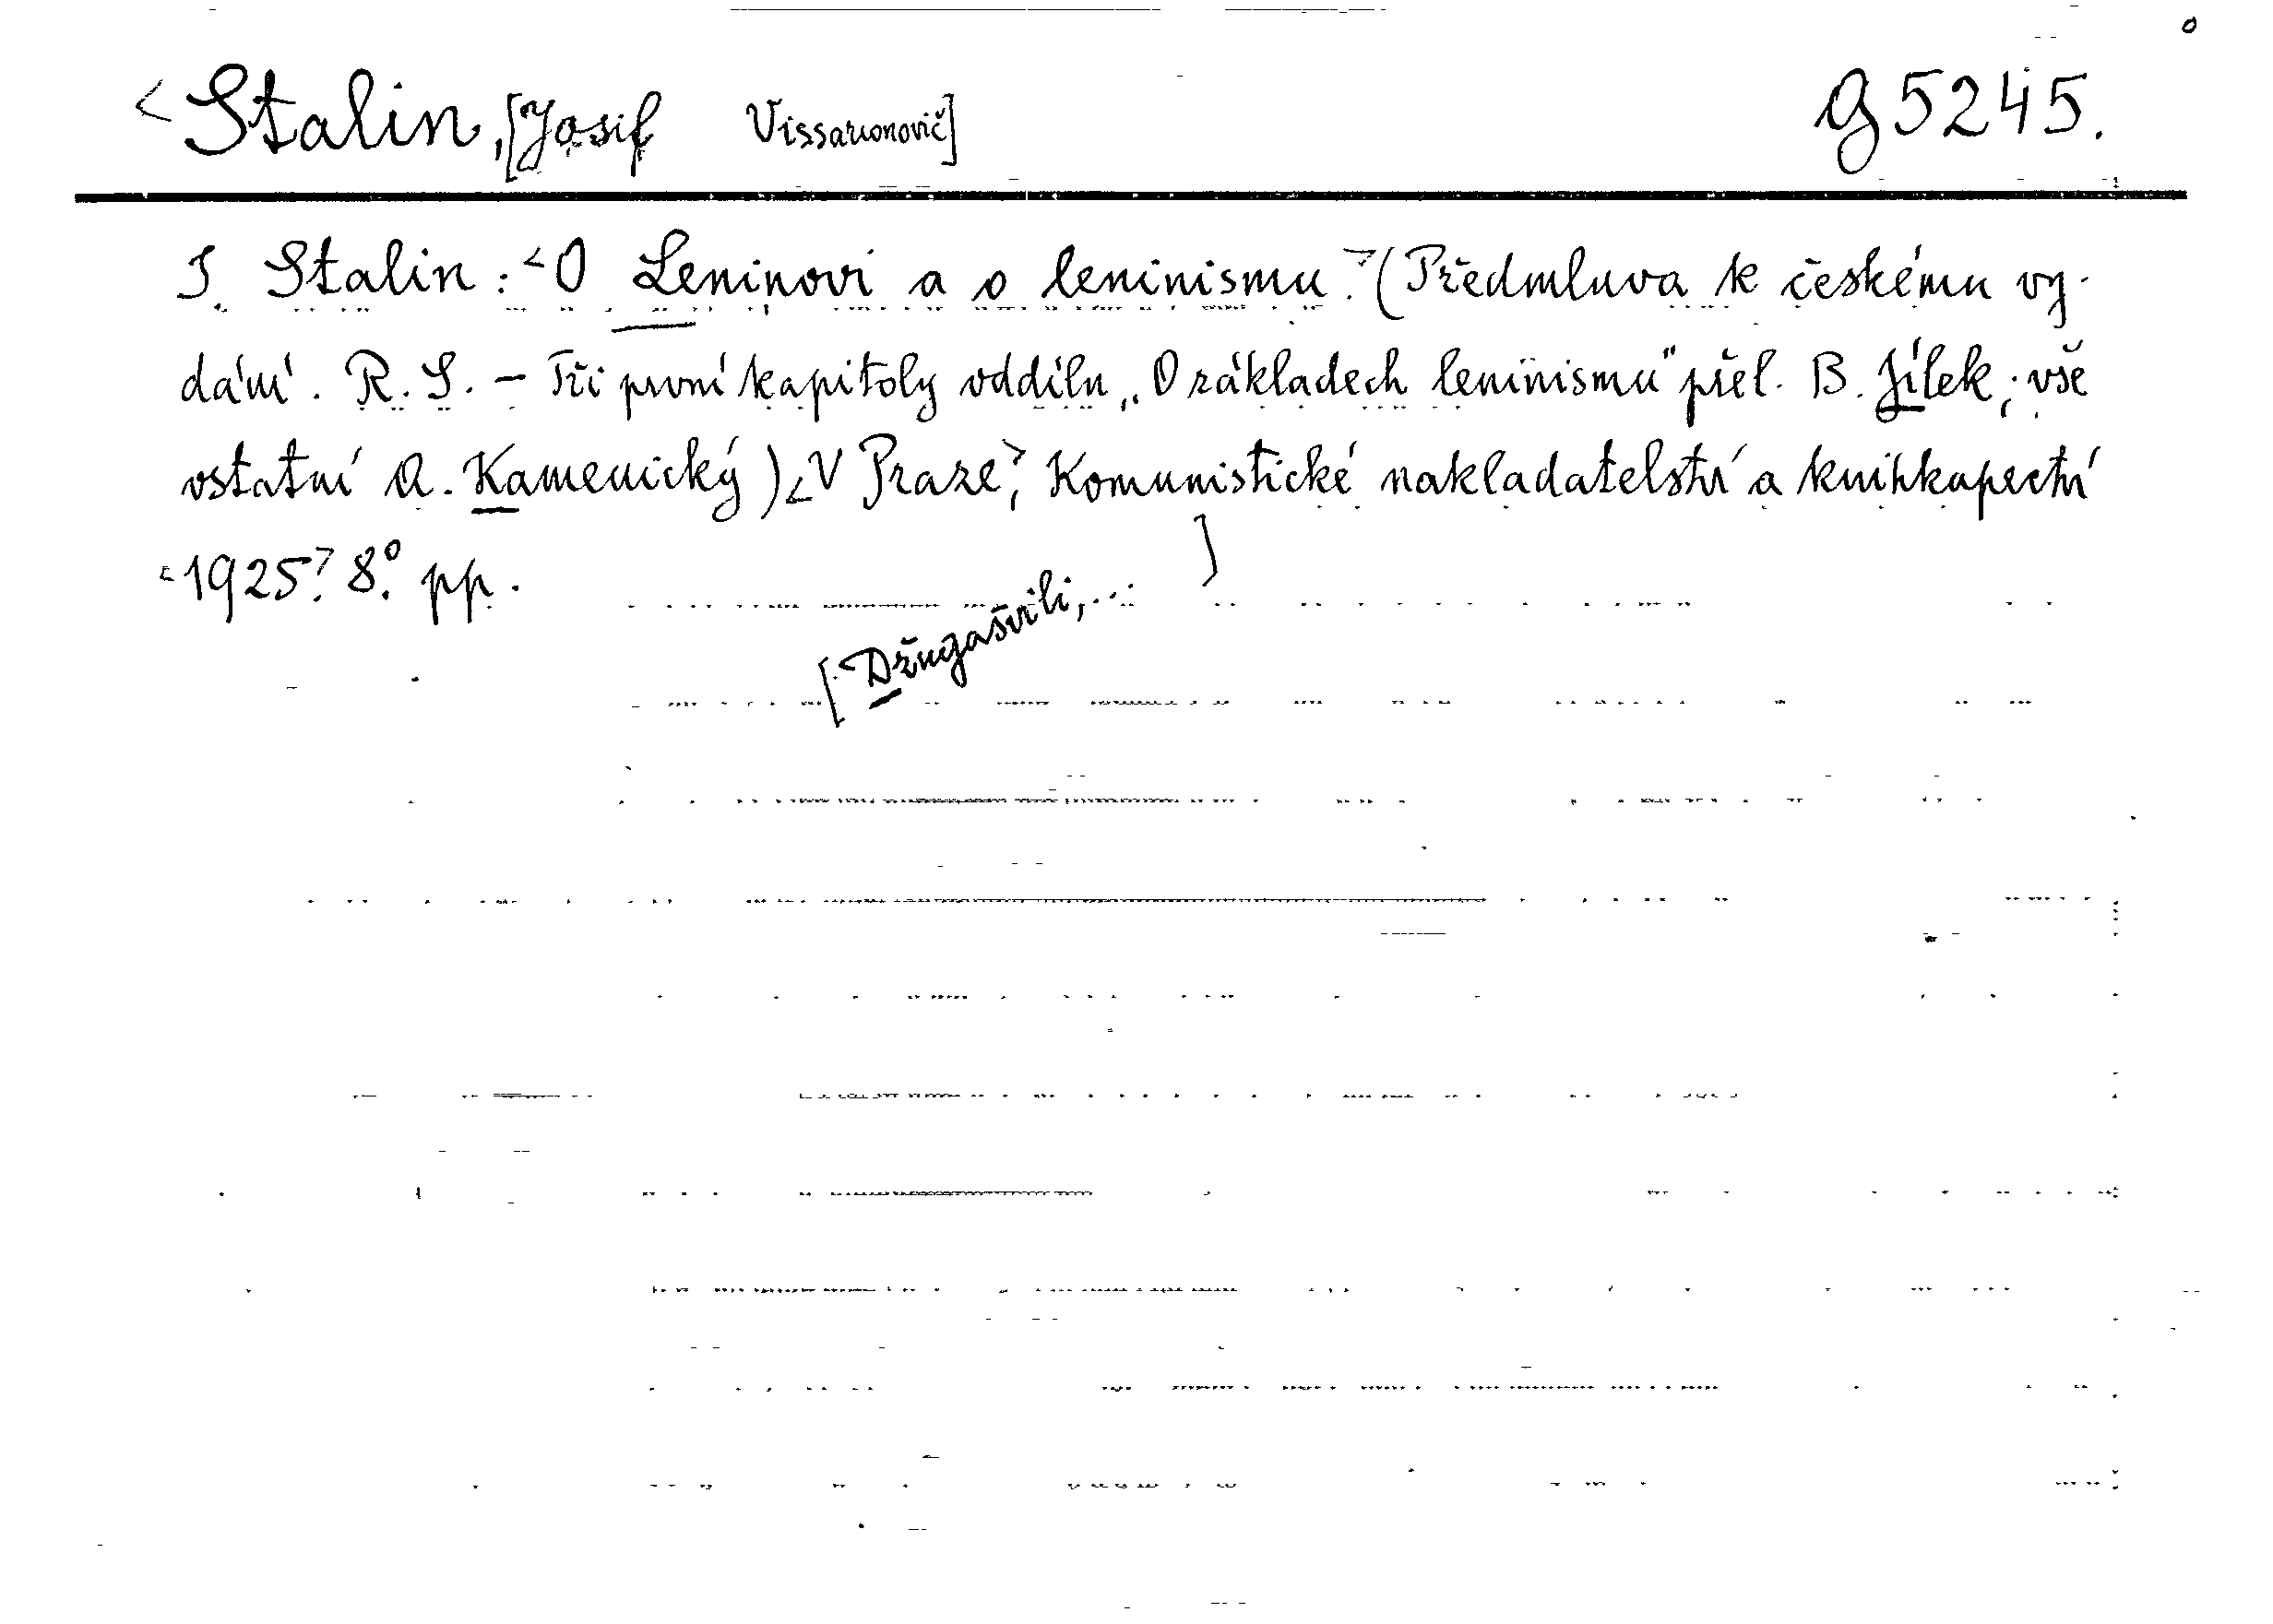 <Stalin, [Josif Vissarionovič] g 5245.
J. Stalin: <O Leninovi a o leninismu.> (Předmluva k českému vy-
dání. R. S. – Tři první kapitoly oddílu „O základech leninismu" přel. B. Jílek; vše
ostatní A. Kamenický) <V Praze>, Komunistické nakladatelství a knihkupectví
<1925>. 8º. pp.
[Džugašvili,... ]